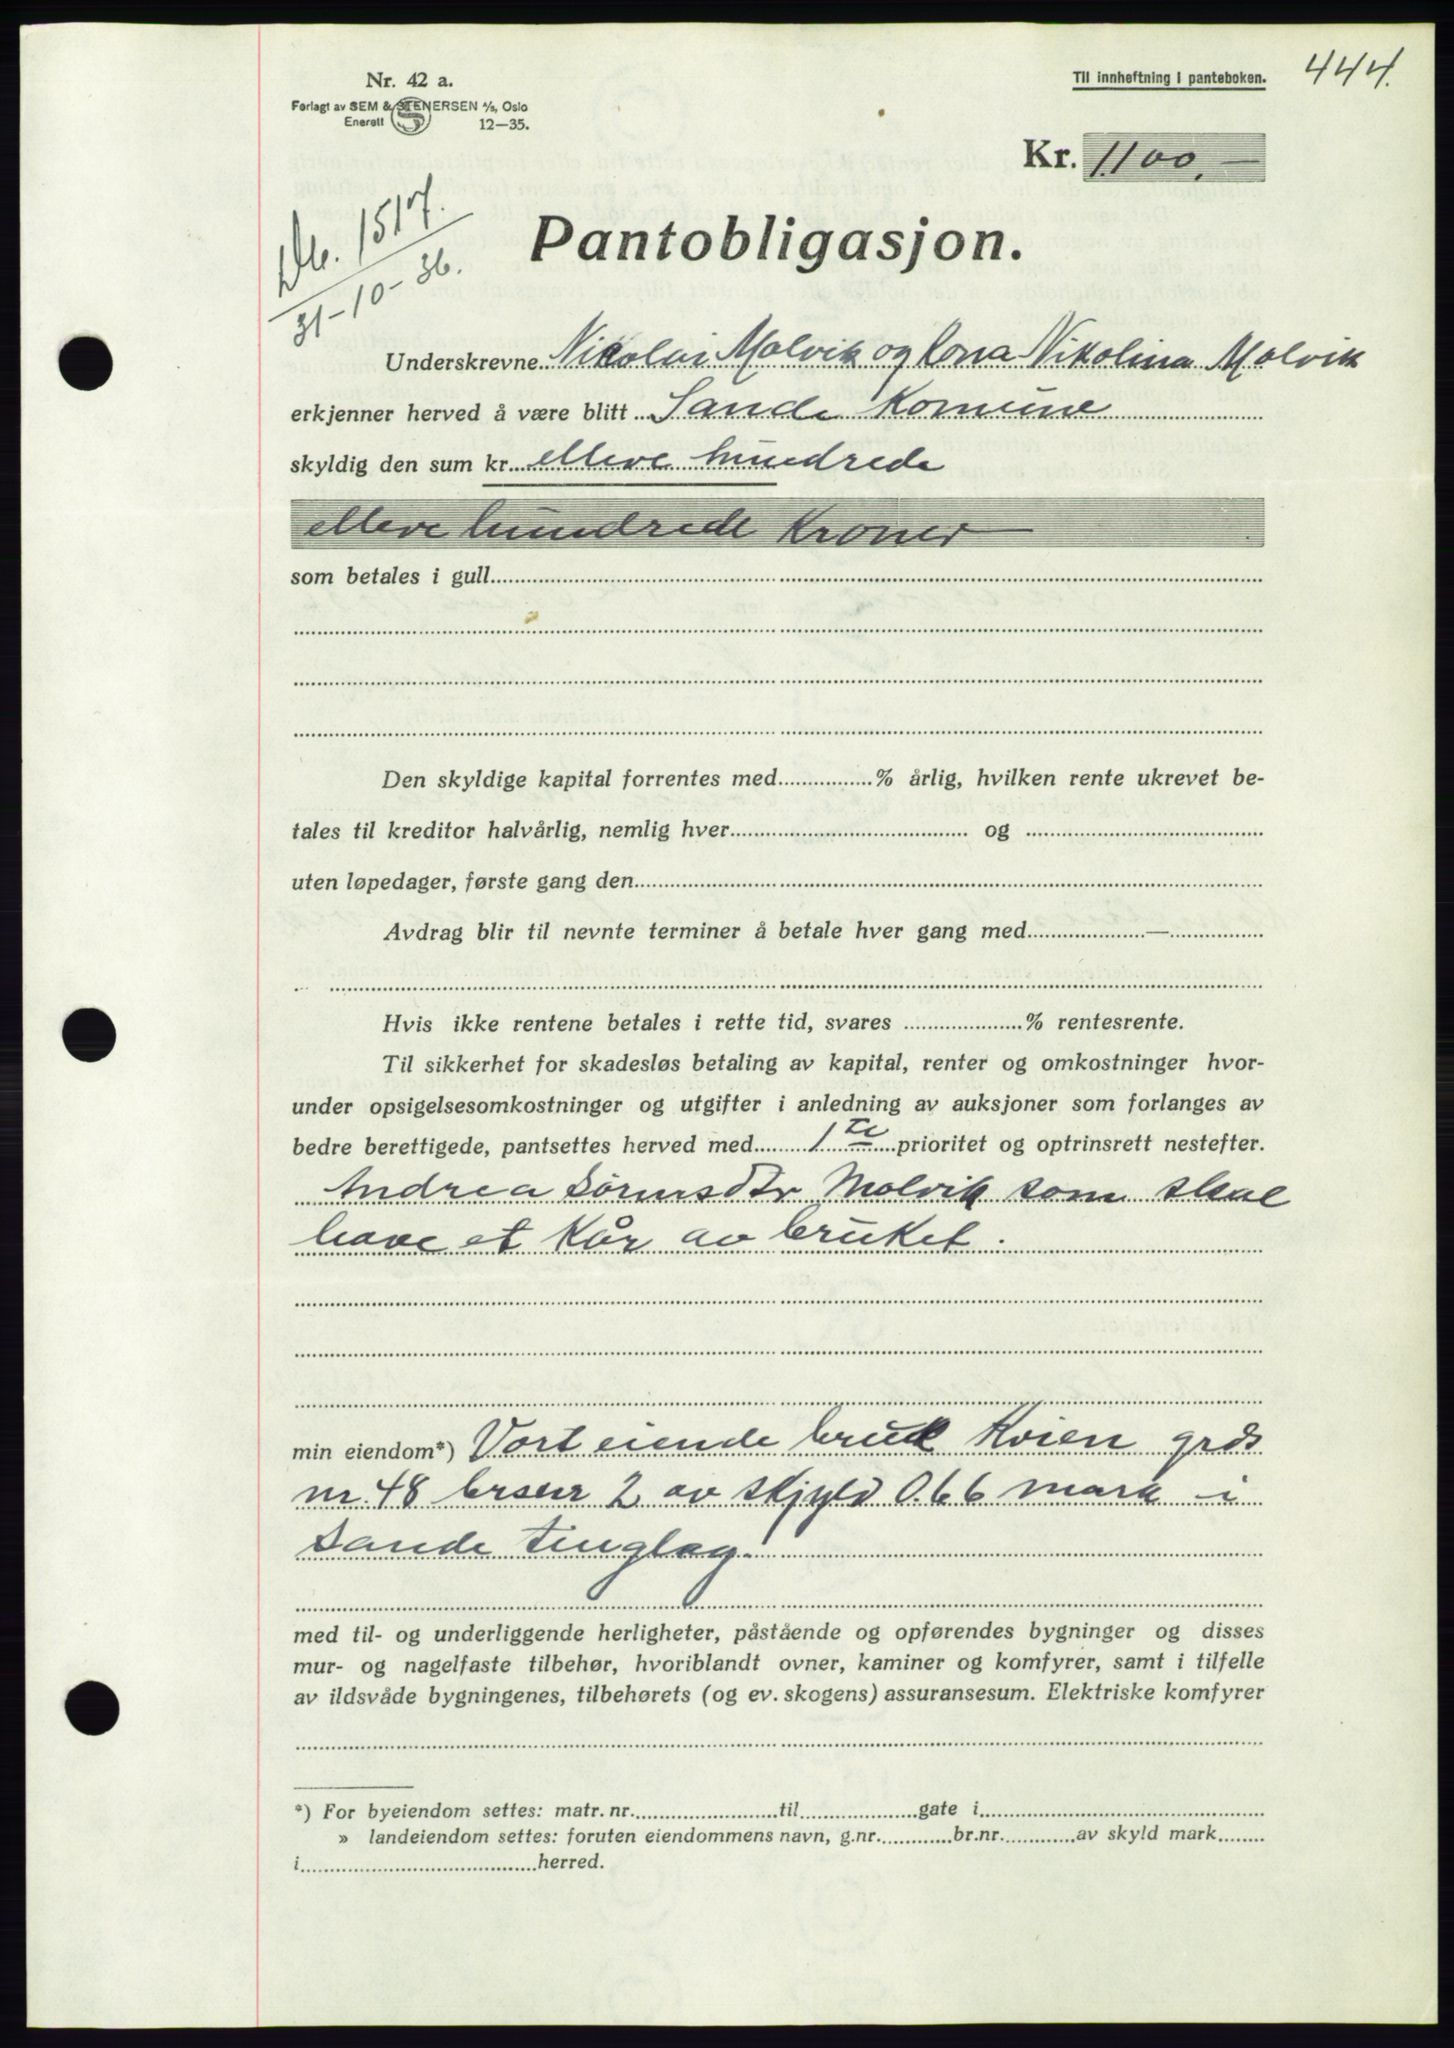 444.
Nr. 42 a.
Til innheftning i panteboken.
Forlagt av SEM & STENERSEN A/S, Oslo
Enerett 12—35.
Kr. 1100,—
Db. 1517.
31-10-36.
Pantobligasjon.
Underskrevne Nikolai Molvik og Cora Nikolina Molvik
erkjenner herved å være blitt Sande Komune
skyldig den sum kr. elleve hundrede
elleve hundrede Kroner
som betales i gull
Den skyldige kapital forrentes med % årlig, hvilken rente ukrevet be-
tales til kreditor halvårlig, nemlig hver og
uten løpedager, første gang den
Avdrag blir til nevnte terminer å betale hver gang med —
Hvis ikke rentene betales i rette tid, svares % rentesrente.
Til sikkerhet for skadesløs betaling av kapital, renter og omkostninger hvor-
under opsigelsesomkostninger og utgifter i anledning av auksjoner som forlanges av
bedre berettigede, pantsettes herved med 1 prioritet og optrinsrett nestefter.
Andrea Molvik som skal
have et Kår av bruket.
min eiendom*) Vort eiende bruk Kvien grds
nr. 48 brsnr 2 av skjyld 0.66 mark i
Sande tinglag.
med til- og underliggende herligheter, påstående og opførendes bygninger og disses
mur- og nagelfaste tilbehør, hvoriblandt ovner, kaminer og komfyrer, samt i tilfelle
av ildsvåde bygningenes, tilbehørets (og ev. skogens) assuransesum. Elektriske komfyrer
*) For byeiendom settes: matr. nr. til gate i
» landeiendom settes: foruten eiendommens navn, g.nr. br.nr. av skyld mark
i herred.